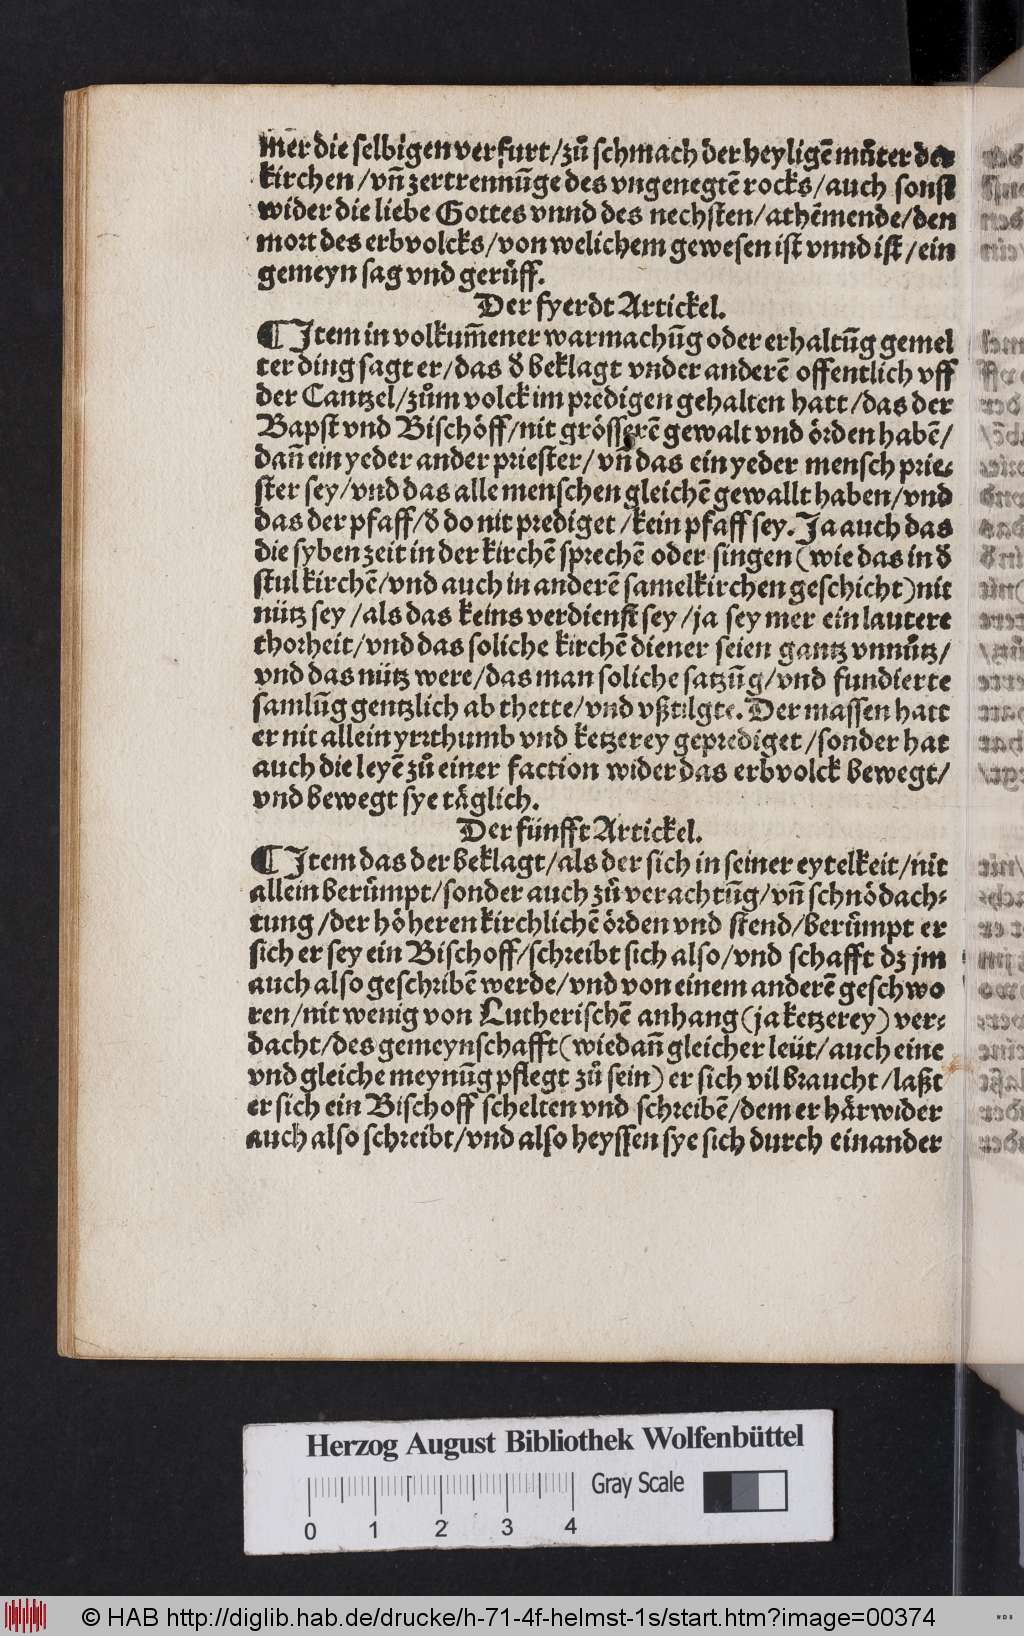 mer die selbigen verfurt/zů schmach der heyligē můter der
kirchen/vn̄ zertrennūge des vngenegtē rocks/auch sonst
wider die liebe Gottes vnnd des nechsten/athēmende/den
mort des erbvolcks/von welichem gewesen ist vnnd ist/ein
gemeyn sag vnd gerüff.
Der fyerdt Artickel.
¶ Item in volkum̄ener warmachūg oder erhaltūg gemel
ter ding sagt er/das d̕ beklagt vnder anderē offentlich vff
der Cantzel/zům volck im predigen gehalten hatt/das der
Bapst vnd Bischöff/nit grösserē gewalt vnd örden habē/
dan̄ ein yeder ander priester/vn̄ das ein yeder mensch prie⸗
ster sey/vnd das alle menschen gleichē gewallt haben/vnd
das der pfaff/d̕ do nit prediget/kein pfaff sey. Ja auch das
die syben zeit in der kirchē sprechē oder singen (wie das in d̕
stulkirchē/vnd auch in anderē samelkirchen geschicht) nit
nütz sey/als das keins verdienst sey/ja sey mer ein lautere
thorheit/vnd das soliche kirchē diener seien gantz vnnütz/
vnd das nütz were/das man soliche satzūg/vnd fundierte
samlūg gentzlich ab thette/vnd vßtilgte. Der massen hatt
er nit allein yrrthumb vnd ketzerey geprediget/sonder hat
auch die leyē zů einer faction wider das erbvolck bewegt/
vnd bewegt sye täglich.
Der fünfft Artickel.
¶ Item das der beklagt/als der sich in seiner eytelkeit/nit
allein berümpt/sonder auch zů verachtūg/vn̄ schnödach⸗
tung/der höheren kirchlichē örden vnd stend/berümpt er
sich er sey ein Bischoff/schreibt sich also/vnd schafft dz jm
auch also geschribē werde/vnd von einem anderē geschwo
ren/nit wenig von Lutherischē anhang (ja ketzerey) ver⸗
dacht/des gemeynschafft (wie dan̄ gleicher leüt/auch eine
vnd gleiche meynūg pflegt zů sein) er sich vil braucht/laßt
er sich ein Bischoff schelten vnd schreibē/dem er härwider
auch also schreibt/vnd also heyssen sye sich durch einander
Herzog August Bibliothek Wolfenbüttel
Gray Scale
0 1 2 3 4
© HAB http://diglib.hab.de/drucke/h-71-4f-helmst-1s/start.htm?image=00374